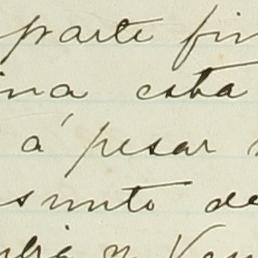 parte fin
ina esta
á pesar
sunto de